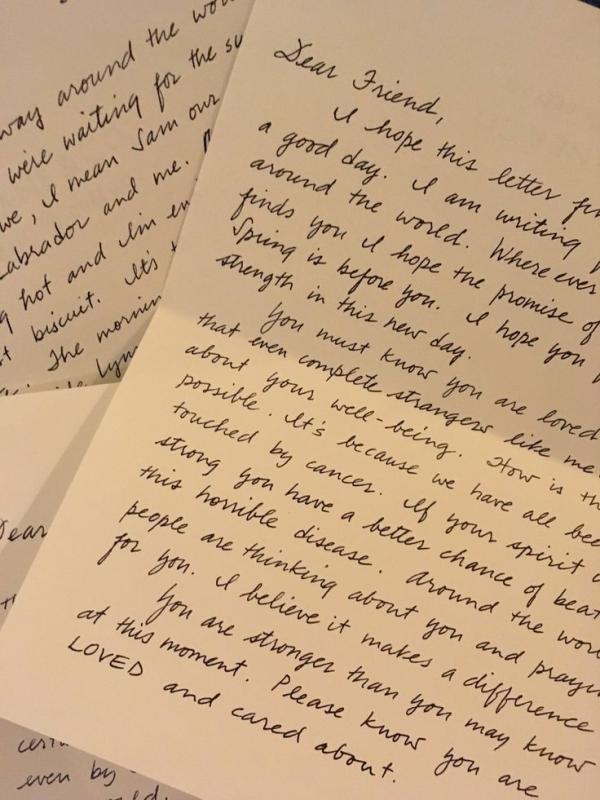 way around the
were waiting for the su
we, I mean Sam our
Labrador and me.
g hot and I'm en
t biscuit. It's
The mornin
Dear Friend,
I hope this letter fin
a good day. I am writing
around the world. Where ever
finds you I hope the promise of
Spring is before you. I hope you
strength in this new day.
You must know you are loved
that even complete strangers like me
about your well-being. How is th
possible. It's because we have all bee
touched by cancer. If your spirit
strong you have a better chance of beat
this horrible disease. Around the wor
people are thinking about you and prayi
for you. I believe it makes a difference
You are stronger than you may know
at this moment. Please know you are
LOVED and cared about.
Dear
even by